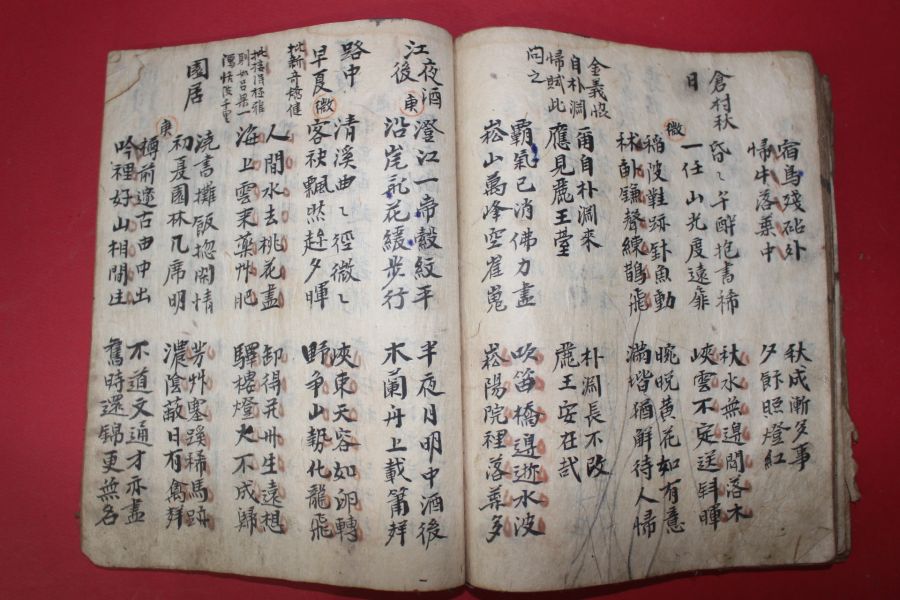 宿馬殘砧外 秋成漸多事
歸牛落葉中 夕餘照燈紅
倉村秋
日
昏〻午醉抱書稀 秋水無邊聞落木
一任山光度遠扉 峽雲不定送斜暉
微
稻陂鞋跡卦魚動 晩晩黃花如有意
秫卧鎌聲練鵲飛 滿堦猶解待人歸
金義恊
自朴淵
歸賦此
問之
爾自朴淵來 朴淵長不改
應見麗王臺 麗王安在哉
霸氣已消佛力盡 吹笛橋邊逝水波
崧山萬峰空崔嵬 崧陽院裡落葉多
夜酒
江後
庚
澄江一帶縠紋平 半夜月明中酒後
沿崖花緩步行 木蘭舟上載簫聲
路中
早夏
微
清溪曲〻徑微〻 峽束天容如卵轉
客袂飄然趁夕暉 野争山勢化龍飛
批新奇矯健
人間水去桃花盡 卸得生遠想
海上雲來藥艸肥 驛樓燈火不成歸
園居
澆書攤飯揔閑情 芳艸塞蹊稀馬跡
庚
初夏園林几席明 濃陰蔽日有禽聲
樽前古曲中出 不道文通才亦盡
吟裡好山相閒生 舊時還錦更無名